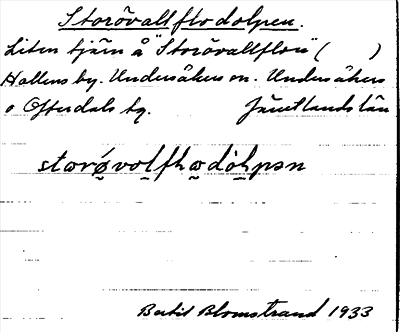 Storövallflodolpen.
Liten tjärn å "Storövallflon" (   )
Hallens by. Undersåkers sn. Undersåkers
o Offerdals tg.   Jämtlands län
Bertil Blomstrand 1933